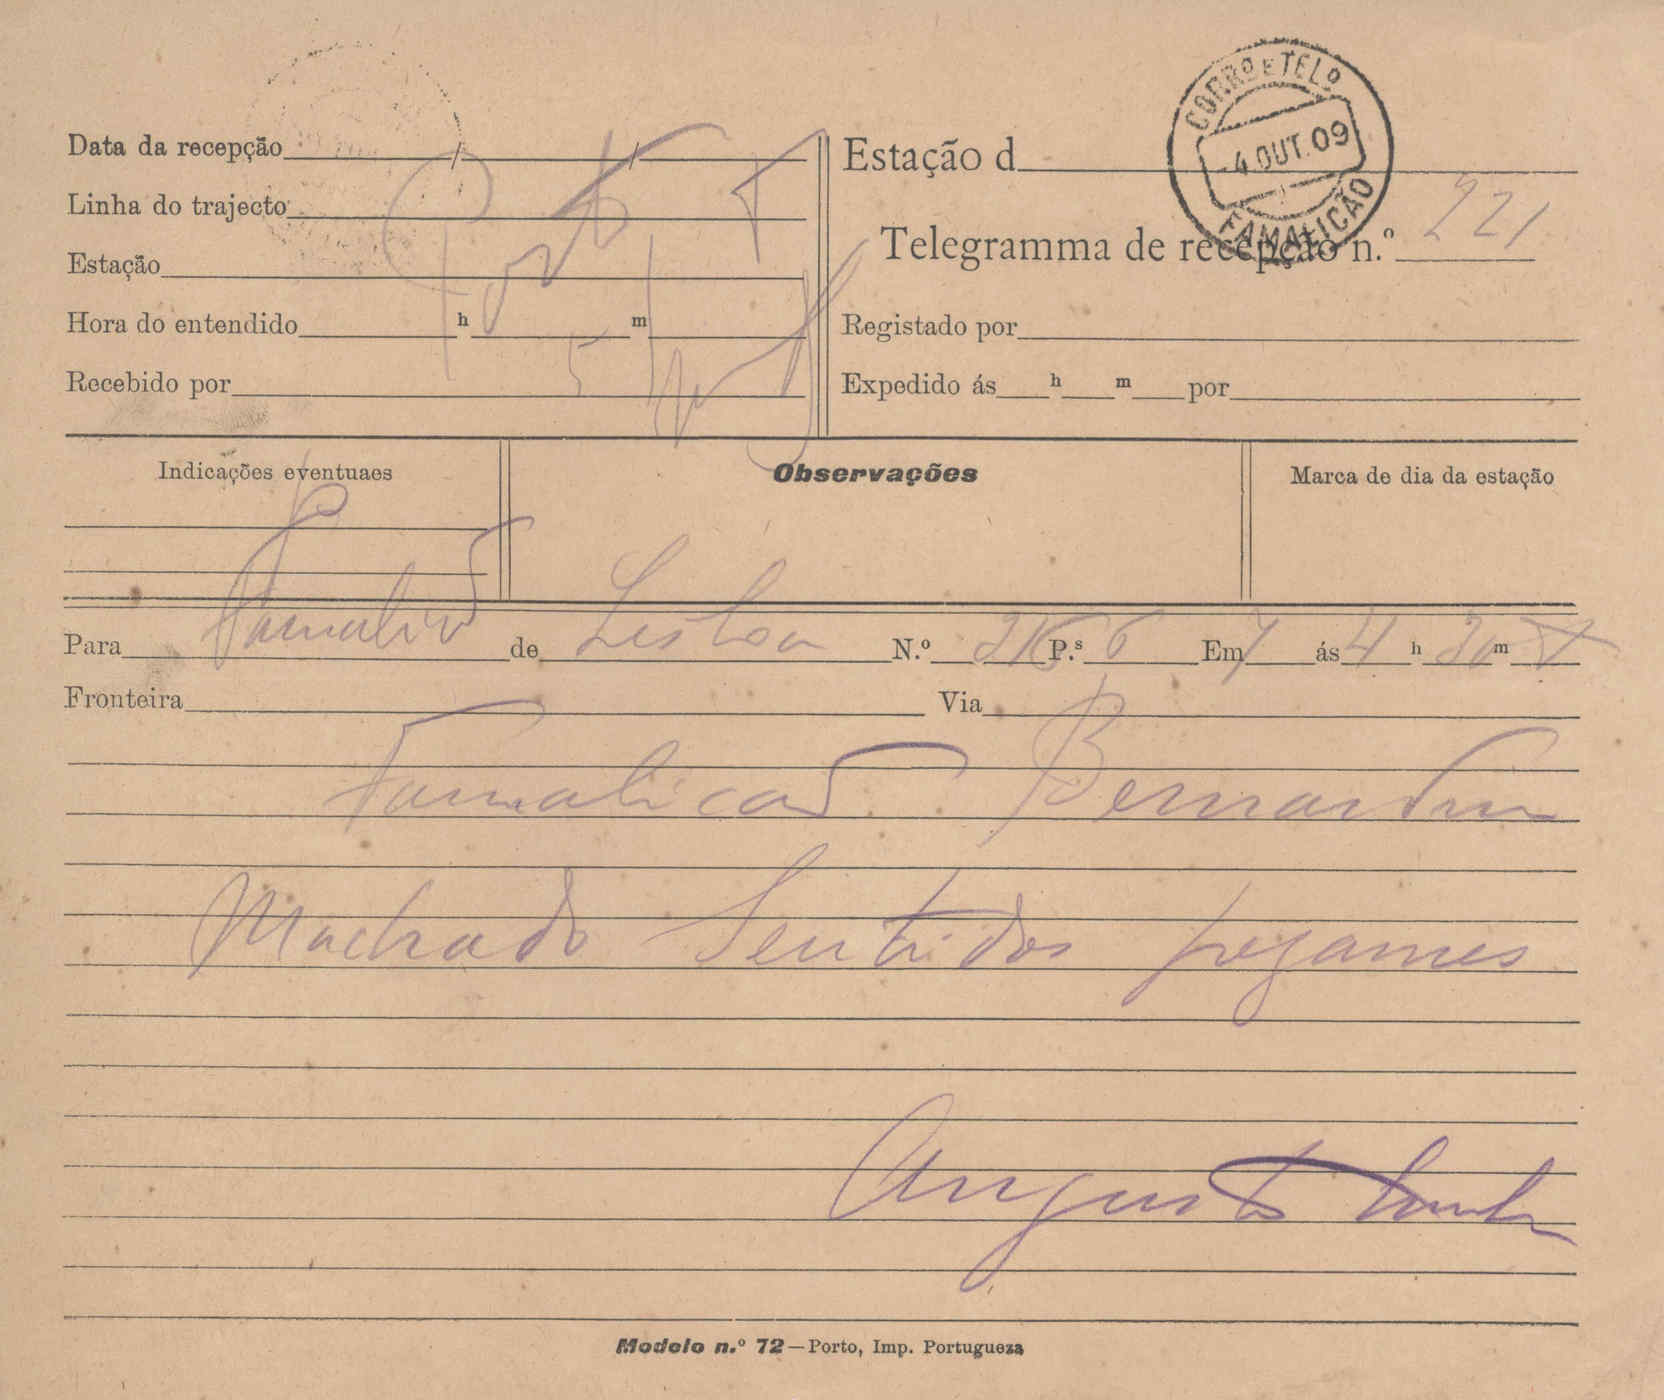 CORRO E TELO
-4.OUT.09
FAMALICÃO
Data da recepção / /
Linha do trajecto
Estação
Hora do entendido h m
Recebido por
Estação d
Telegramma de recepção n.º 221
Registado por
Expedido ás h m por
Indicações eventuaes
Observações
Marca de dia da estação
Para de Lisboa N.º P.s 6 Em ás 4 h 30 m
Fronteira Via
Famalicão Bernardino
Machado Sentidos pesames
Augusto
Modelo n.º 72—Porto, Imp. Portugueza